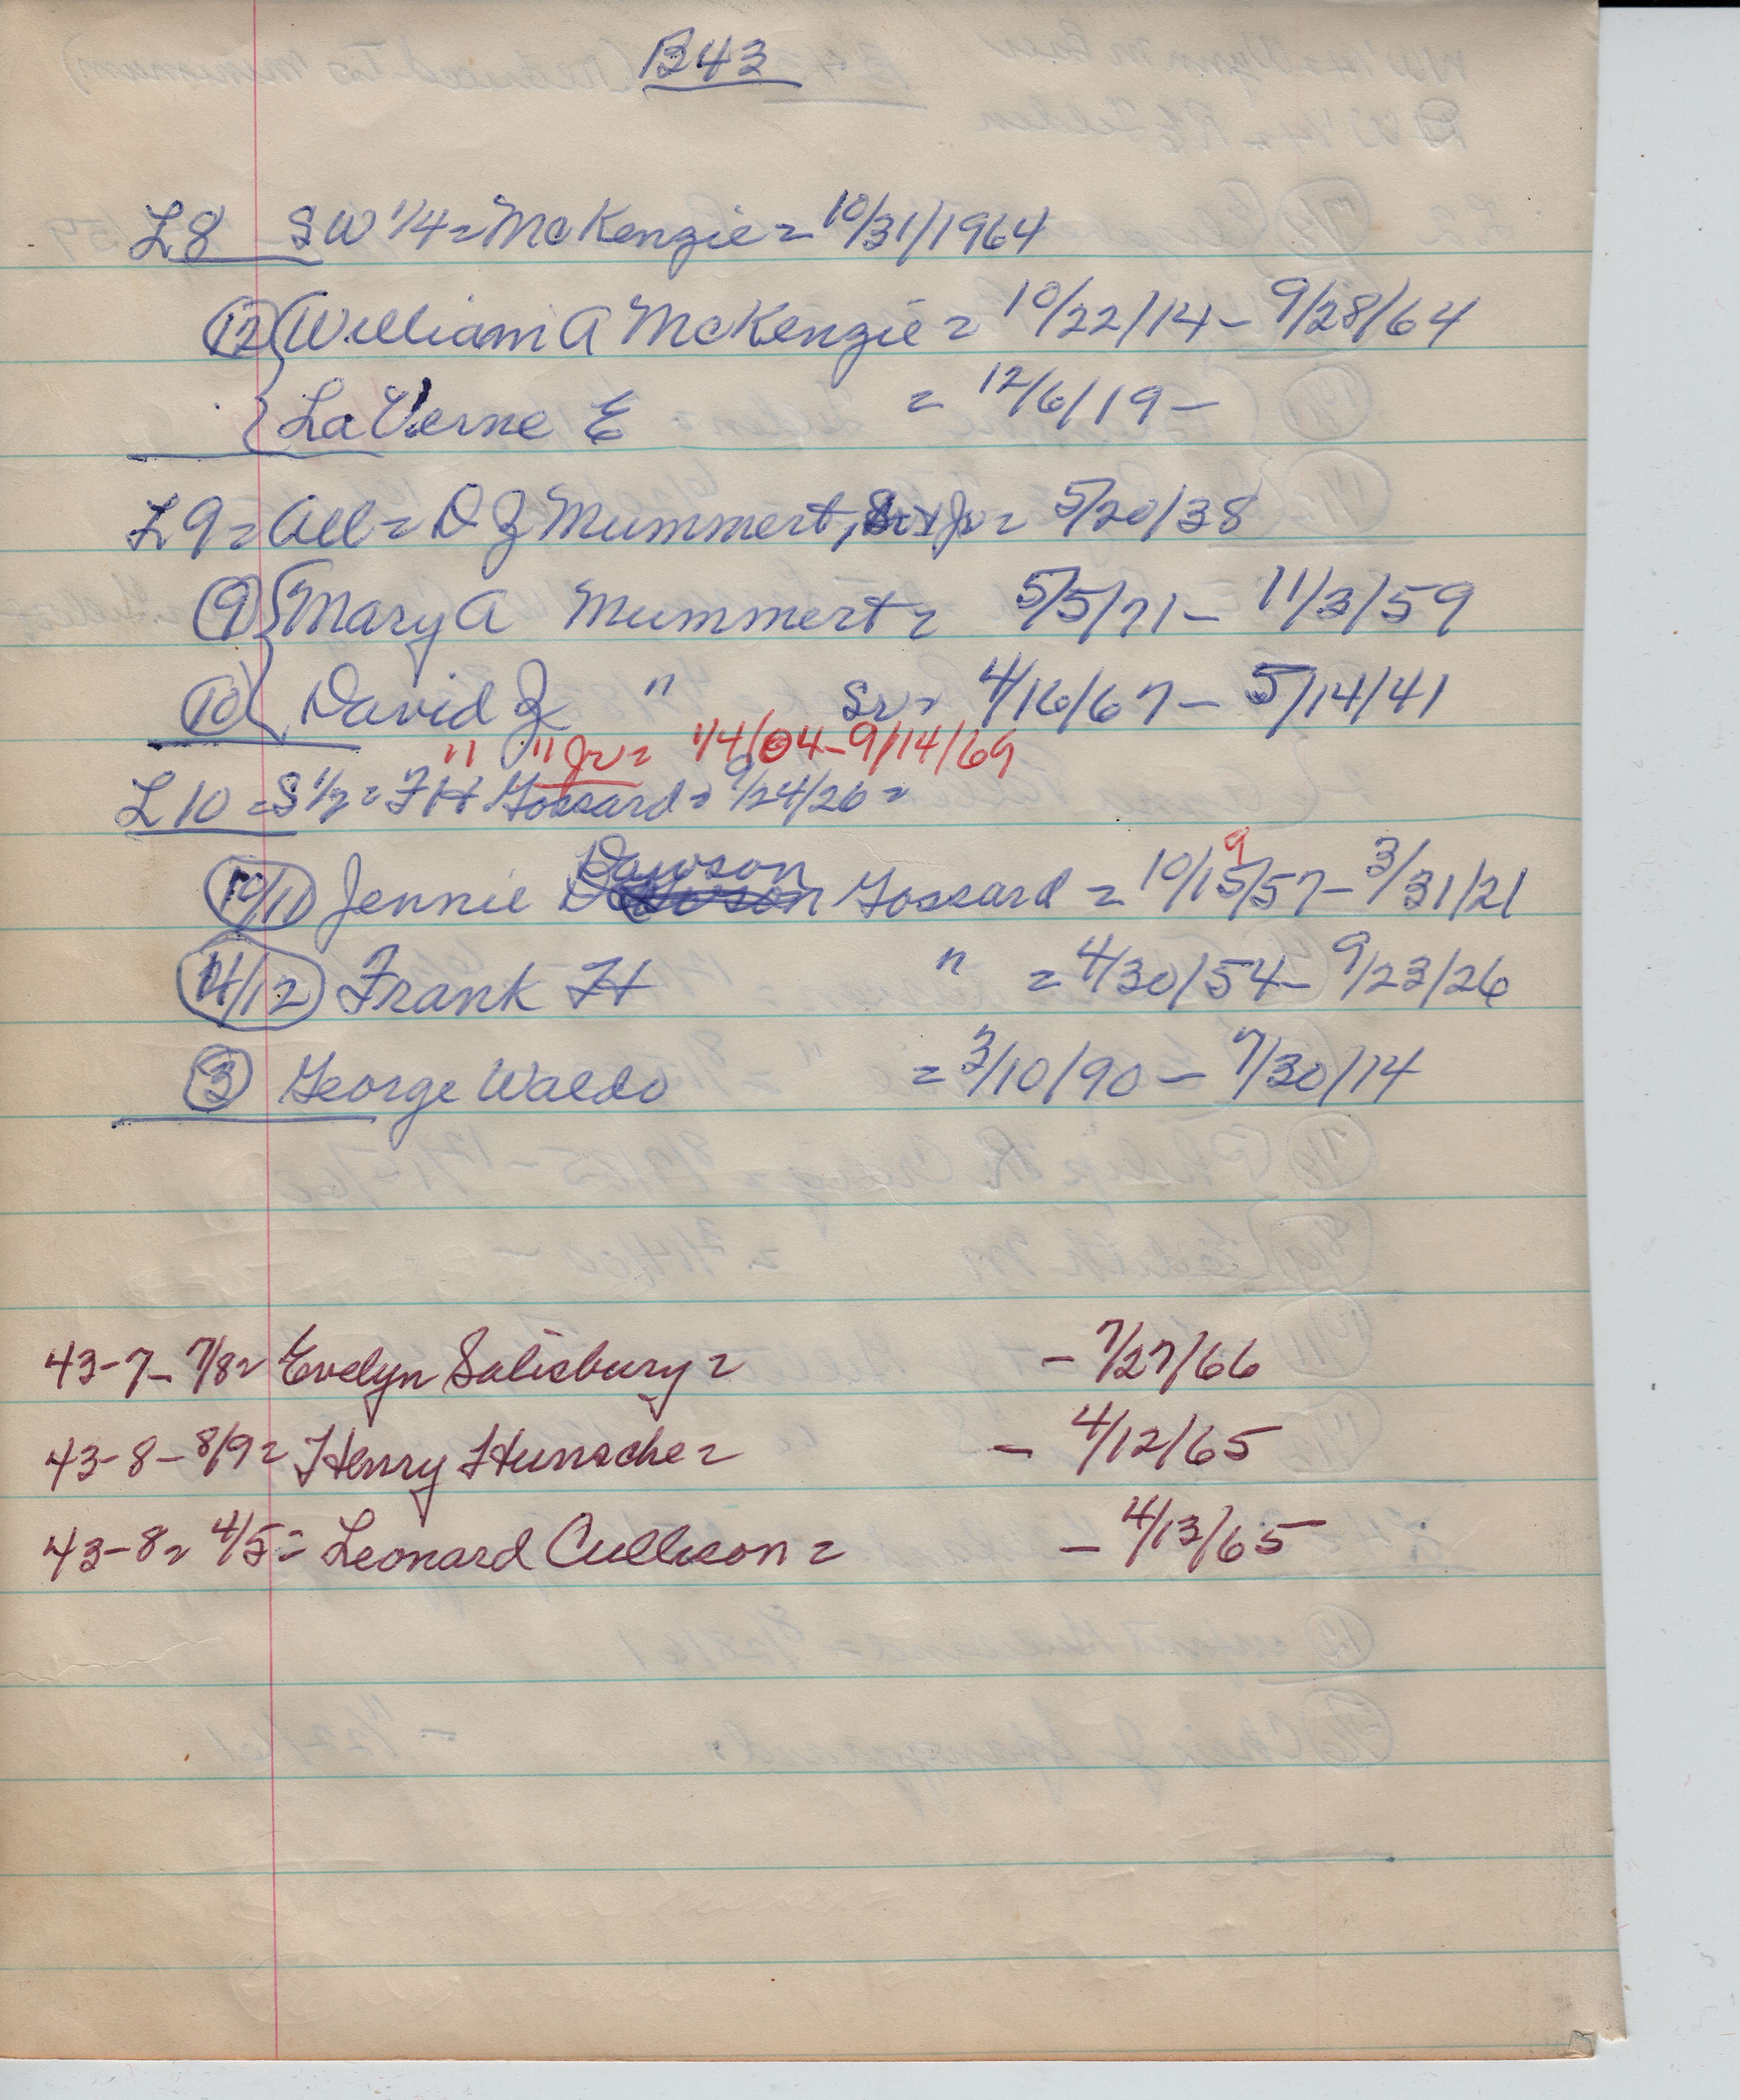 B43
L8 SW 1/4 = McKenzie = 10/31/1964
12 William A McKenzie = 10/22/14 - 9/28/64
LaVerne E = 12/6/19 -
L9 = All = D Z Mummert, Sr & Jr = 5/20/38
9 Mary A Mummert = 5/5/71 - 11/3/59
10 David Z " Sr = 4/16/67 - 5/14/41
" " Jr = 1/4/04 - 9/14/69
L10 = S 1/2 = F H Gossard = 9/24/26 =
9
10/11 Jennie Dawson Gossard = 10/15/57 - 3/31/21
11/12 Frank H " = 4/30/54 - 9/23/26
3 George Waldo = 3/10/90 - 7/30/14
43-7- 7/8 = Evelyn Salisbury = - 7/27/66
43-8- 8/9 = Henry Hunsche = - 4/12/65
43-8 = 4/5 = Leonard Cullison = - 4/13/65